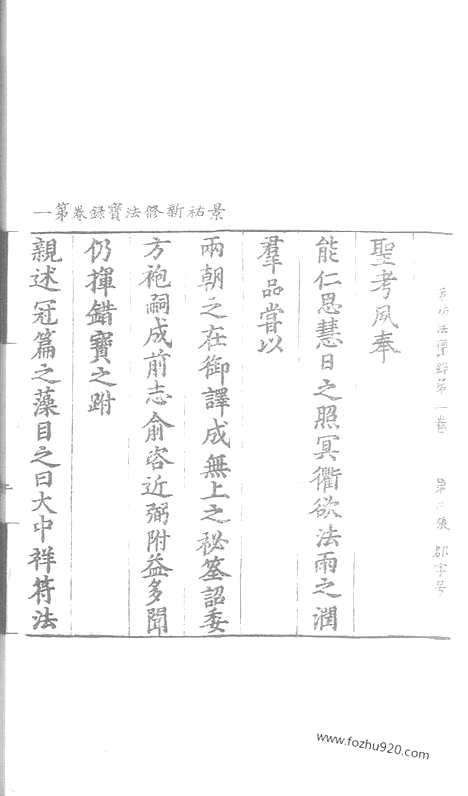 景祐新修法寶錄卷第一
聖考夙奉
能仁恩慧日之照冥衢欲法雨之潤
羣品嘗以
兩朝之在御譯成無上之祕筌詔委
方袍嗣成前志俞咨近弼附益多聞
仍揮錯寶之跗
親述冠篇之藻目之曰大中祥符法
www.fozhu920.com